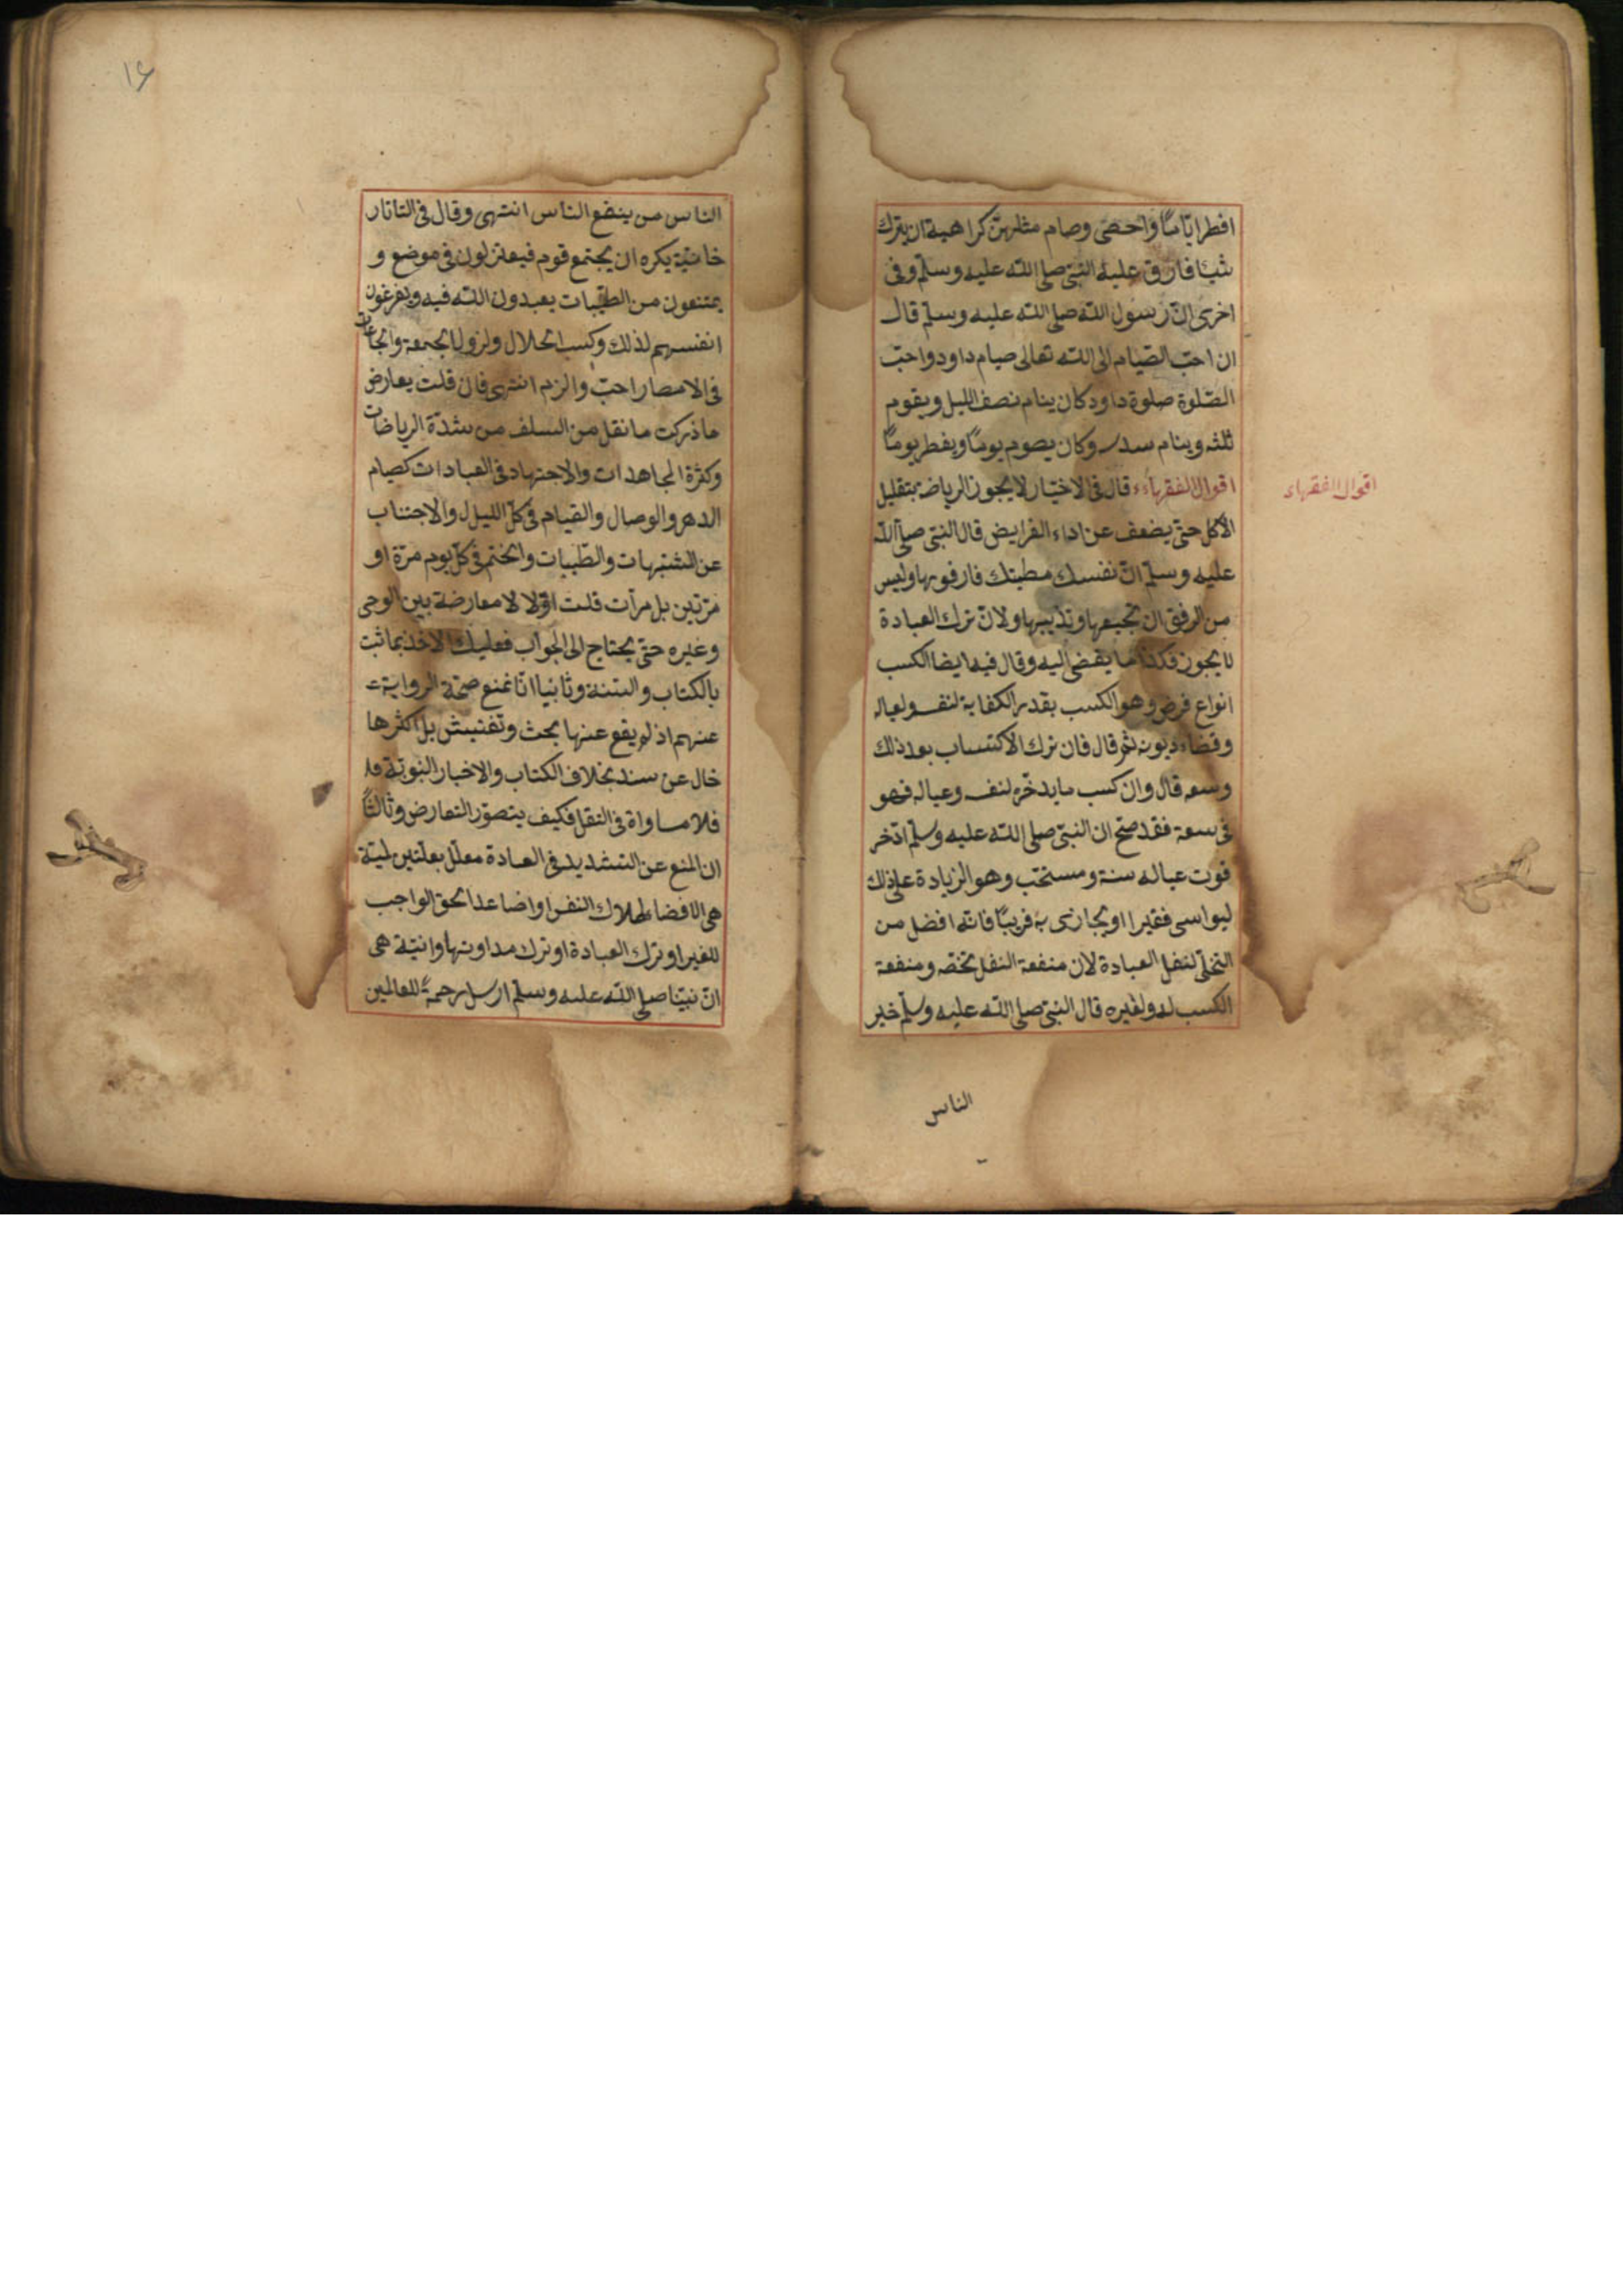 افطر ايّامًا واحصى وصام مثلهنّ كراهية ان يترك
شيئا فارق عليه النبىّ صلى اللّه عليه وسلّم وفى
اخرى انّ رسول اللّه صلى اللّه عليه وسلّم قال
ان احبّ الصّيام الى اللّه تعالى صيام داود واحبّ
الصّلوة صلوة داود كان ينام نصف الليل ويقوم
ثلثه وينام سدسه وكان يصوم يومًا ويفطر يومًا
اقوال الفقهاء قال فى الاختيار لا يجوز الرياضة بتقليل
اقوال الفقهاء
الاكل حتىّ يضعف عن اداء الفرايض قال النبىّ صلى اللّه
عليه وسلّم انّ نفسك مطيتك فارفق بها وليس
من الرفق ان تجيعها وتذيبها ولانّ ترك العبادة
لا يجوز فكذا ما يفضى اليه وقال فيه ايضا الكسب
انواع فرض وهو الكسب بقدر الكفاية لنفسه ولعياله
وقضاء ديونه ثم قال فان ترك الاكتساب بعد ذلك
وسعه قال وان كسب ما يدخّره لنفسه وعياله فهو
فى سعة فقد صحّ ان النبىّ صلى اللّه عليه وسلّم ادّخر
قوت عياله سنة ومستحّب وهو الزيادة على ذلك
ليواسى فقيرا او يجازى به قريبًا فانّه افضل من
التخلّى لنفل العبادة لان منفعة النفل تخصّه ومنفعة
الكسب له ولغيره قال النبىّ صلى اللّه عليه وسلّم خير
الناس
١٤
الناس من ينفع الناس انتهى وقال فى التاتار
خانيّة يكره ان يجتمع قوم فيعتزلون فى موضع و
يمتنعون من الطيّبات يعبدون اللّه فيه ويفرغون
انفسهم لذلك وكسب الحلال ولزوم الجمعة والجماعات
فى الامصار احبّ والزم انتهى فان قلت يعارض
ما ذكرت ما نقل من السلف من شدّة الرياضات
وكثرة المجاهدات والاجتهاد فى العبادات كصيام
الدهر والوصال والقيام فى كلّ الليل والاجتناب
عن الشبهات والطّيبات والختم فى كلّ يوم مرّة او
مرّتين بل مرّات قلت اوّلا لا معارضة بين الوحى
وغيره حتىّ يحتاج الى الجواب فعليك الاخذ بما ثبت
بالكتاب والسّنة وثانيا انّا نمنع صحّة الرواية
عنهم اذ لم يقع عنها بحث وتفتيش بل اكثرها
خال عن سند بخلاف الكتاب والاخبار النبويّة
فلا مساواة فى النقل فكيف يتصوّر التعارض وثالثًا
ان المنع عن التشديد فى العبادة معلّل بعلّتين لميّة
هى الافضاء لهلاك النفس او اضاعة الحق الواجب
للغير او ترك العبادة او ترك مداومتها وانيّة هى
انّ نبيّنا صلى اللّه عليه وسلّم ارسل رحمةً للعالمين